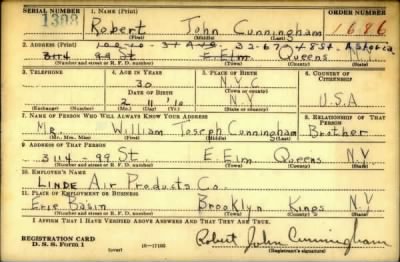 SERIAL NUMBER 1. NAME (Print) ORDER NUMBER
1308 Robert John Cunningham 1686
(First) (Middle) (Last)
2. ADDRESS (Print) 100-10-37 AVE. 32-67 St. Astoria
3114 99 St E. Elm. Queens N.Y.
(Number and street or R. F. D. number) (Town) (County) (State)
3. TELEPHONE 4. AGE IN YEARS 5. PLACE OF BIRTH 6. COUNTRY OF CITIZENSHIP
30 N.Y.C.
DATE OF BIRTH (Town or county)
2 11 '10 N.Y. U.S.A
(Exchange) (Number) (Mo.) (Day) (Yr.) (State or country)
7. NAME OF PERSON WHO WILL ALWAYS KNOW YOUR ADDRESS 8. RELATIONSHIP OF THAT PERSON
Mr. William Joseph Cunningham Brother
(Mr., Mrs., Miss) (First) (Middle) (Last)
9. ADDRESS OF THAT PERSON
3114-99 St. E. Elm Queens N.Y
(Number and street or R. F. D. number) (Town) (County) (State)
10. EMPLOYER'S NAME
LINDE Air Products Co.
11. PLACE OF EMPLOYMENT OR BUSINESS
Erie Basin Brooklyn Kings N.Y
(Number and street or R. F. D. number) (Town) (County) (State)
I AFFIRM THAT I HAVE VERIFIED ABOVE ANSWERS AND THAT THEY ARE TRUE.
REGISTRATION CARD
D. S. S. Form 1 (over) 16—17105 Robert John Cunningham
(Registrant's signature)